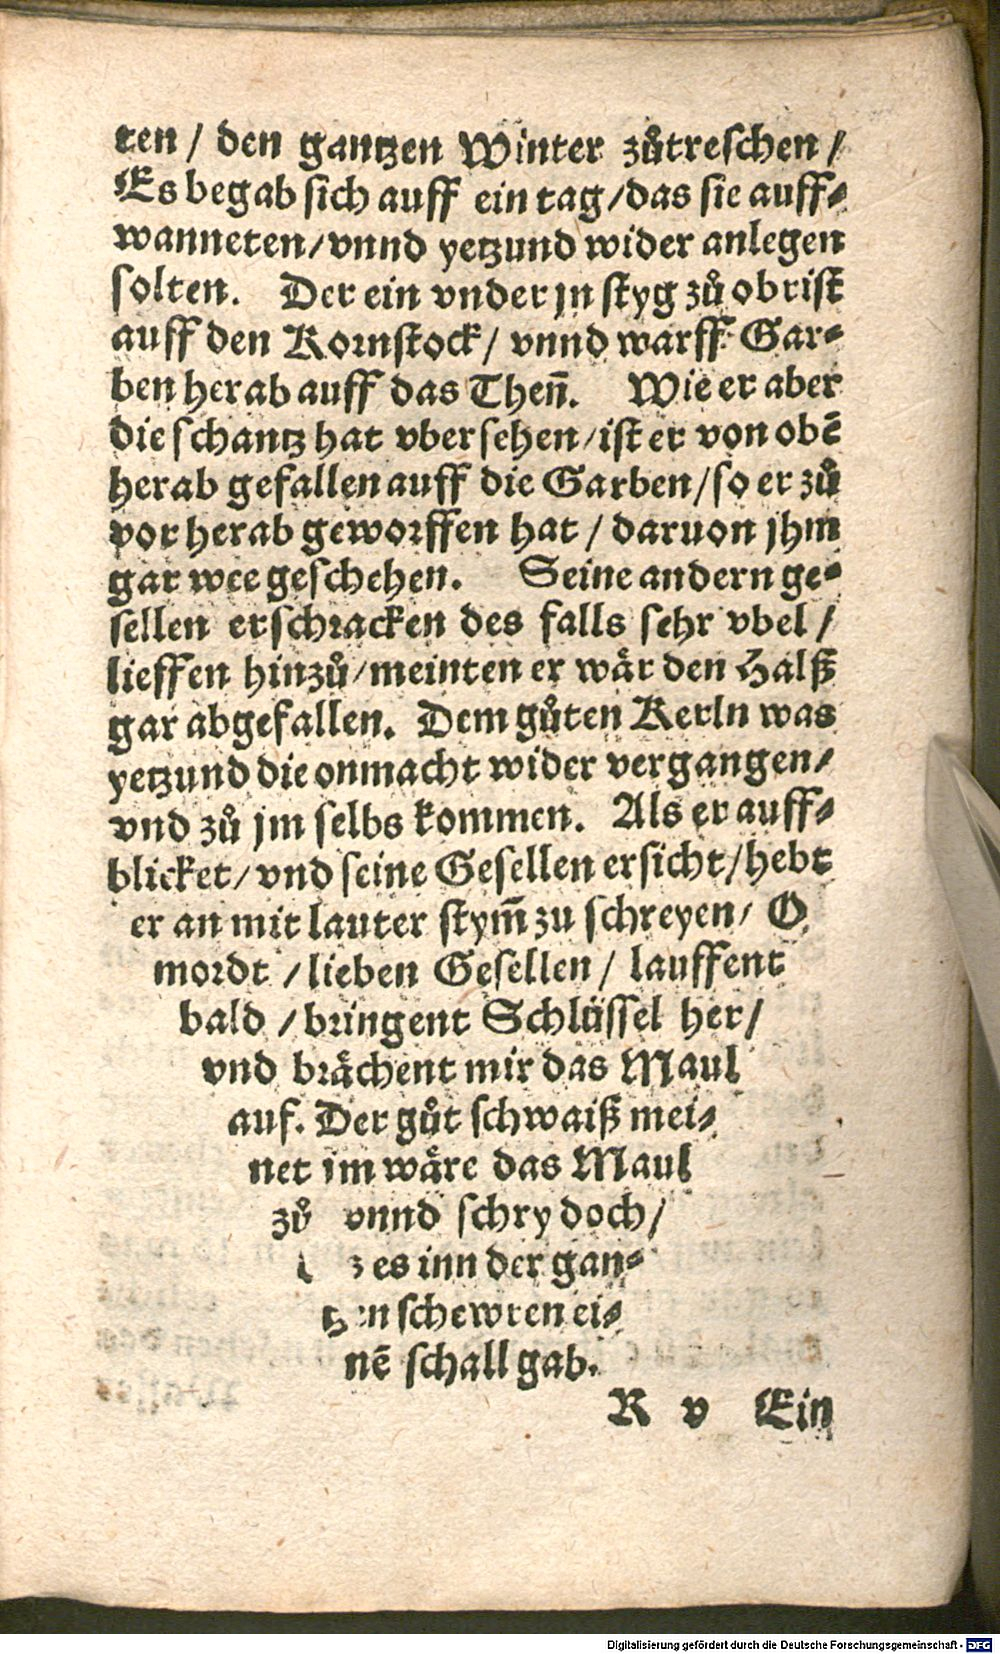 ten / den gantzen Winter zůtreschen /
Es begab sich auff ein tag / das sie auff-
wanneten / vnnd yetzund wider anlegen
solten. Der ein vnder jn styg zů obrist
auff den Kornstock / vnnd warff Gar-
ben herab auff das Theñ. Wie er aber
die schantz hat vbersehen / ist er von obẽ
herab gefallen auff die Garben / so er zů
vor herab geworffen hat / daruon jhm
gar wee geschehen. Seine andern ge-
sellen erschracken des falls sehr vbel /
lieffen hinzů / meinten er wår den Halß
gar abgefallen. Dem gůten Kerln was
yetzund die onmacht wider vergangen /
vnd zů jm selbs kommen. Als er auff-
blicket / vnd seine Gesellen ersicht / hebt
er an mit lauter stym̃ zu schreyen / O
mordt / lieben Gesellen / lauffent
bald / bringent Schlüssel her /
vnd bråchent mir das Maul
auf. Der gůt schwaiß mei-
net im wåre das Maul
zů vnnd schry doch /
es inn der gan-
schewren ei-
nẽ schall gab.
R v Ein
Digitalisierung gefördert durch die Deutsche Forschungsgemeinschaft - DFG